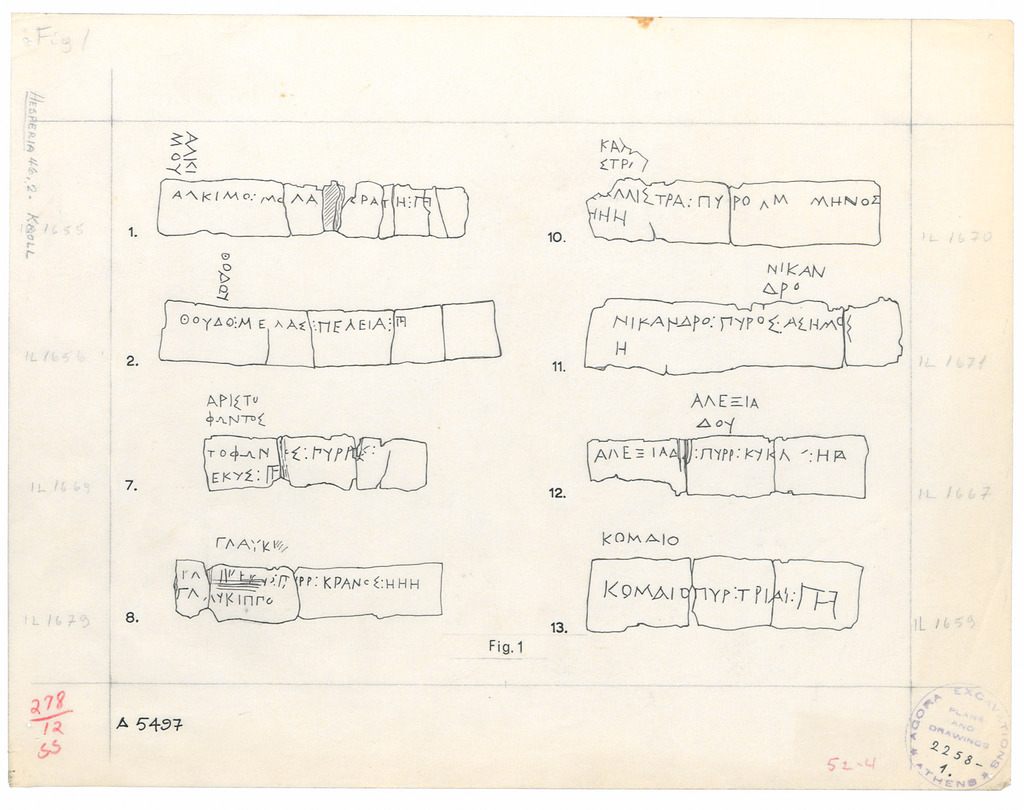 Fig 1
HESPERIA 46, 2. KROLL
ΑΛΚΙ
ΜΟΥ
ΑΛΚΙΜΟ: ΛΑ ΡΑΤΗ:
1.
IL 1655
ΘΟΥΔΟ:ΜΕΛΑΣ:ΠΕΛΕΙΑ:
2.
IL 1656
ΑΡΙΣΤΟ
ΦΩΝΤΟΣ
ΤΟΦΩΝ Σ:ΠΥΡΡ :
ΕΚΥΣ:
7.
IL 1669
ΓΛΑΥΚ
ΓΛ ΡΡ:ΚΡΑΝΟΣ:ΗΗΗ
ΓΛ ΥΚΙΠΠΟ
8.
IL 1679
ΚΑΛ
ΣΤΡ
ΛΛΙΣΤΡΑ:ΠΥΡΟ ΛΜ ΜΗΝΟΣ
ΗΗΗ
10.
IL 1670
ΝΙΚΑΝ
ΔΡΟ
ΝΙΚΑΝΔΡΟ:ΠΥΡΟΣ:ΑΣΗΜΟΣ
Η
11.
IL 1671
ΑΛΕΞΙΑ
ΔΟΥ
ΑΛΕΞΙΑΔ :ΠΥΡΡ:ΚΥΚΛ :Η
12.
IL 1667
ΚΩΜΑΙΟ
ΚΩΜΑΙΟ ΠΥΡ:ΤΡΙΑΙ:
13.
IL 1659
Fig. 1
278
12
55
Δ 5497
52-4
AGORA EXCAVATIONS
ATHENS
PLANS
AND
DRAWINGS
2258-
1.